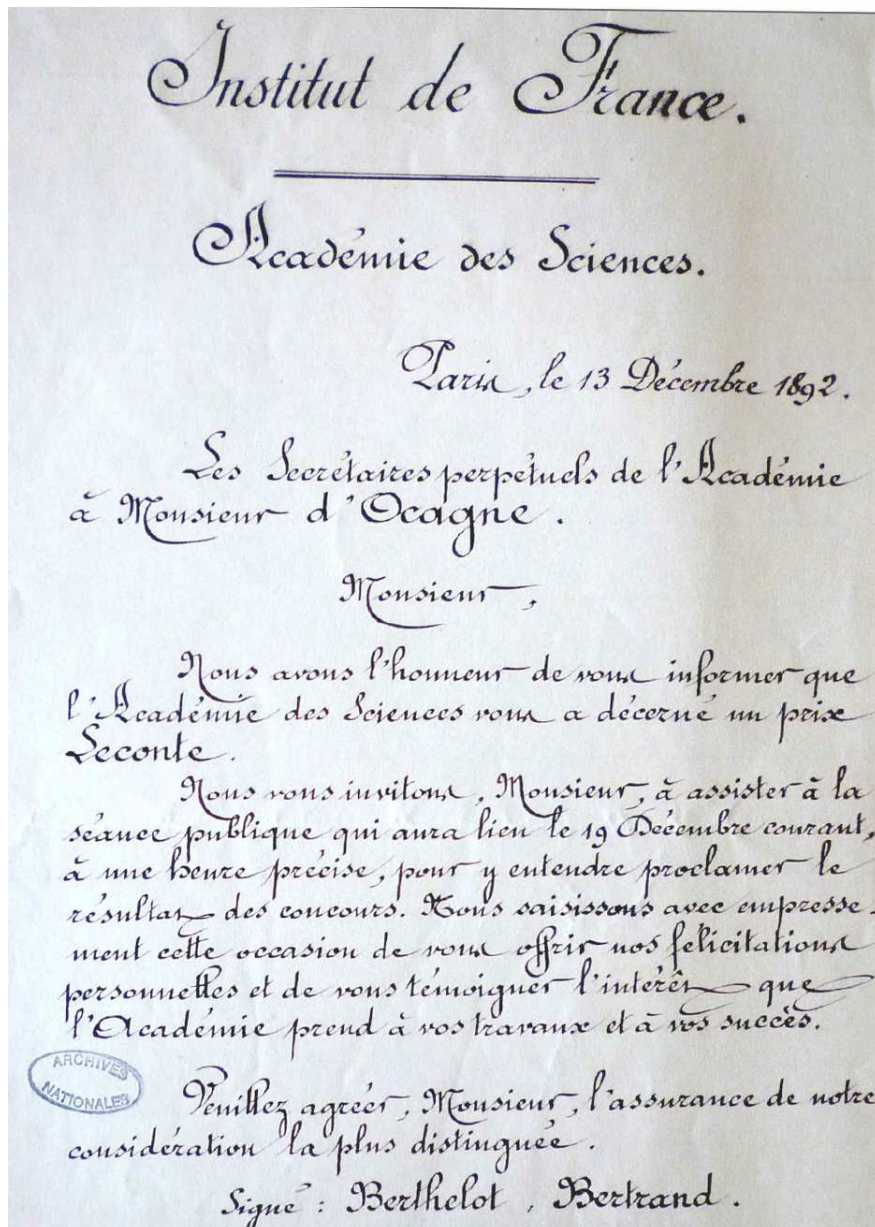 Institut de France.
Académie des Sciences.
Paris, le 13 Décembre 1892.
Les Secrétaires perpétuels de l'Académie
à Monsieur d'Ocagne.
Monsieur,
Nous avons l'honneur de vous informer que
l'Académie des Sciences vous a décerné un prix
Leconte.
Nous vous invitons, Monsieur, à assister à la
séance publique qui aura lieu le 19 Décembre courant,
à une heure précise, pour y entendre proclamer le
résultat des concours. Nous saisissons avec empresse-
ment cette occasion de vous offrir nos félicitations
personnelles et de vous témoigner l'intérêt que
l'Académie prend à vos travaux et à vos succès.
ARCHIVES
NATIONALES
Veuillez agréer, Monsieur, l'assurance de notre
considération la plus distinguée.
Signé : Berthelot, Bertrand.